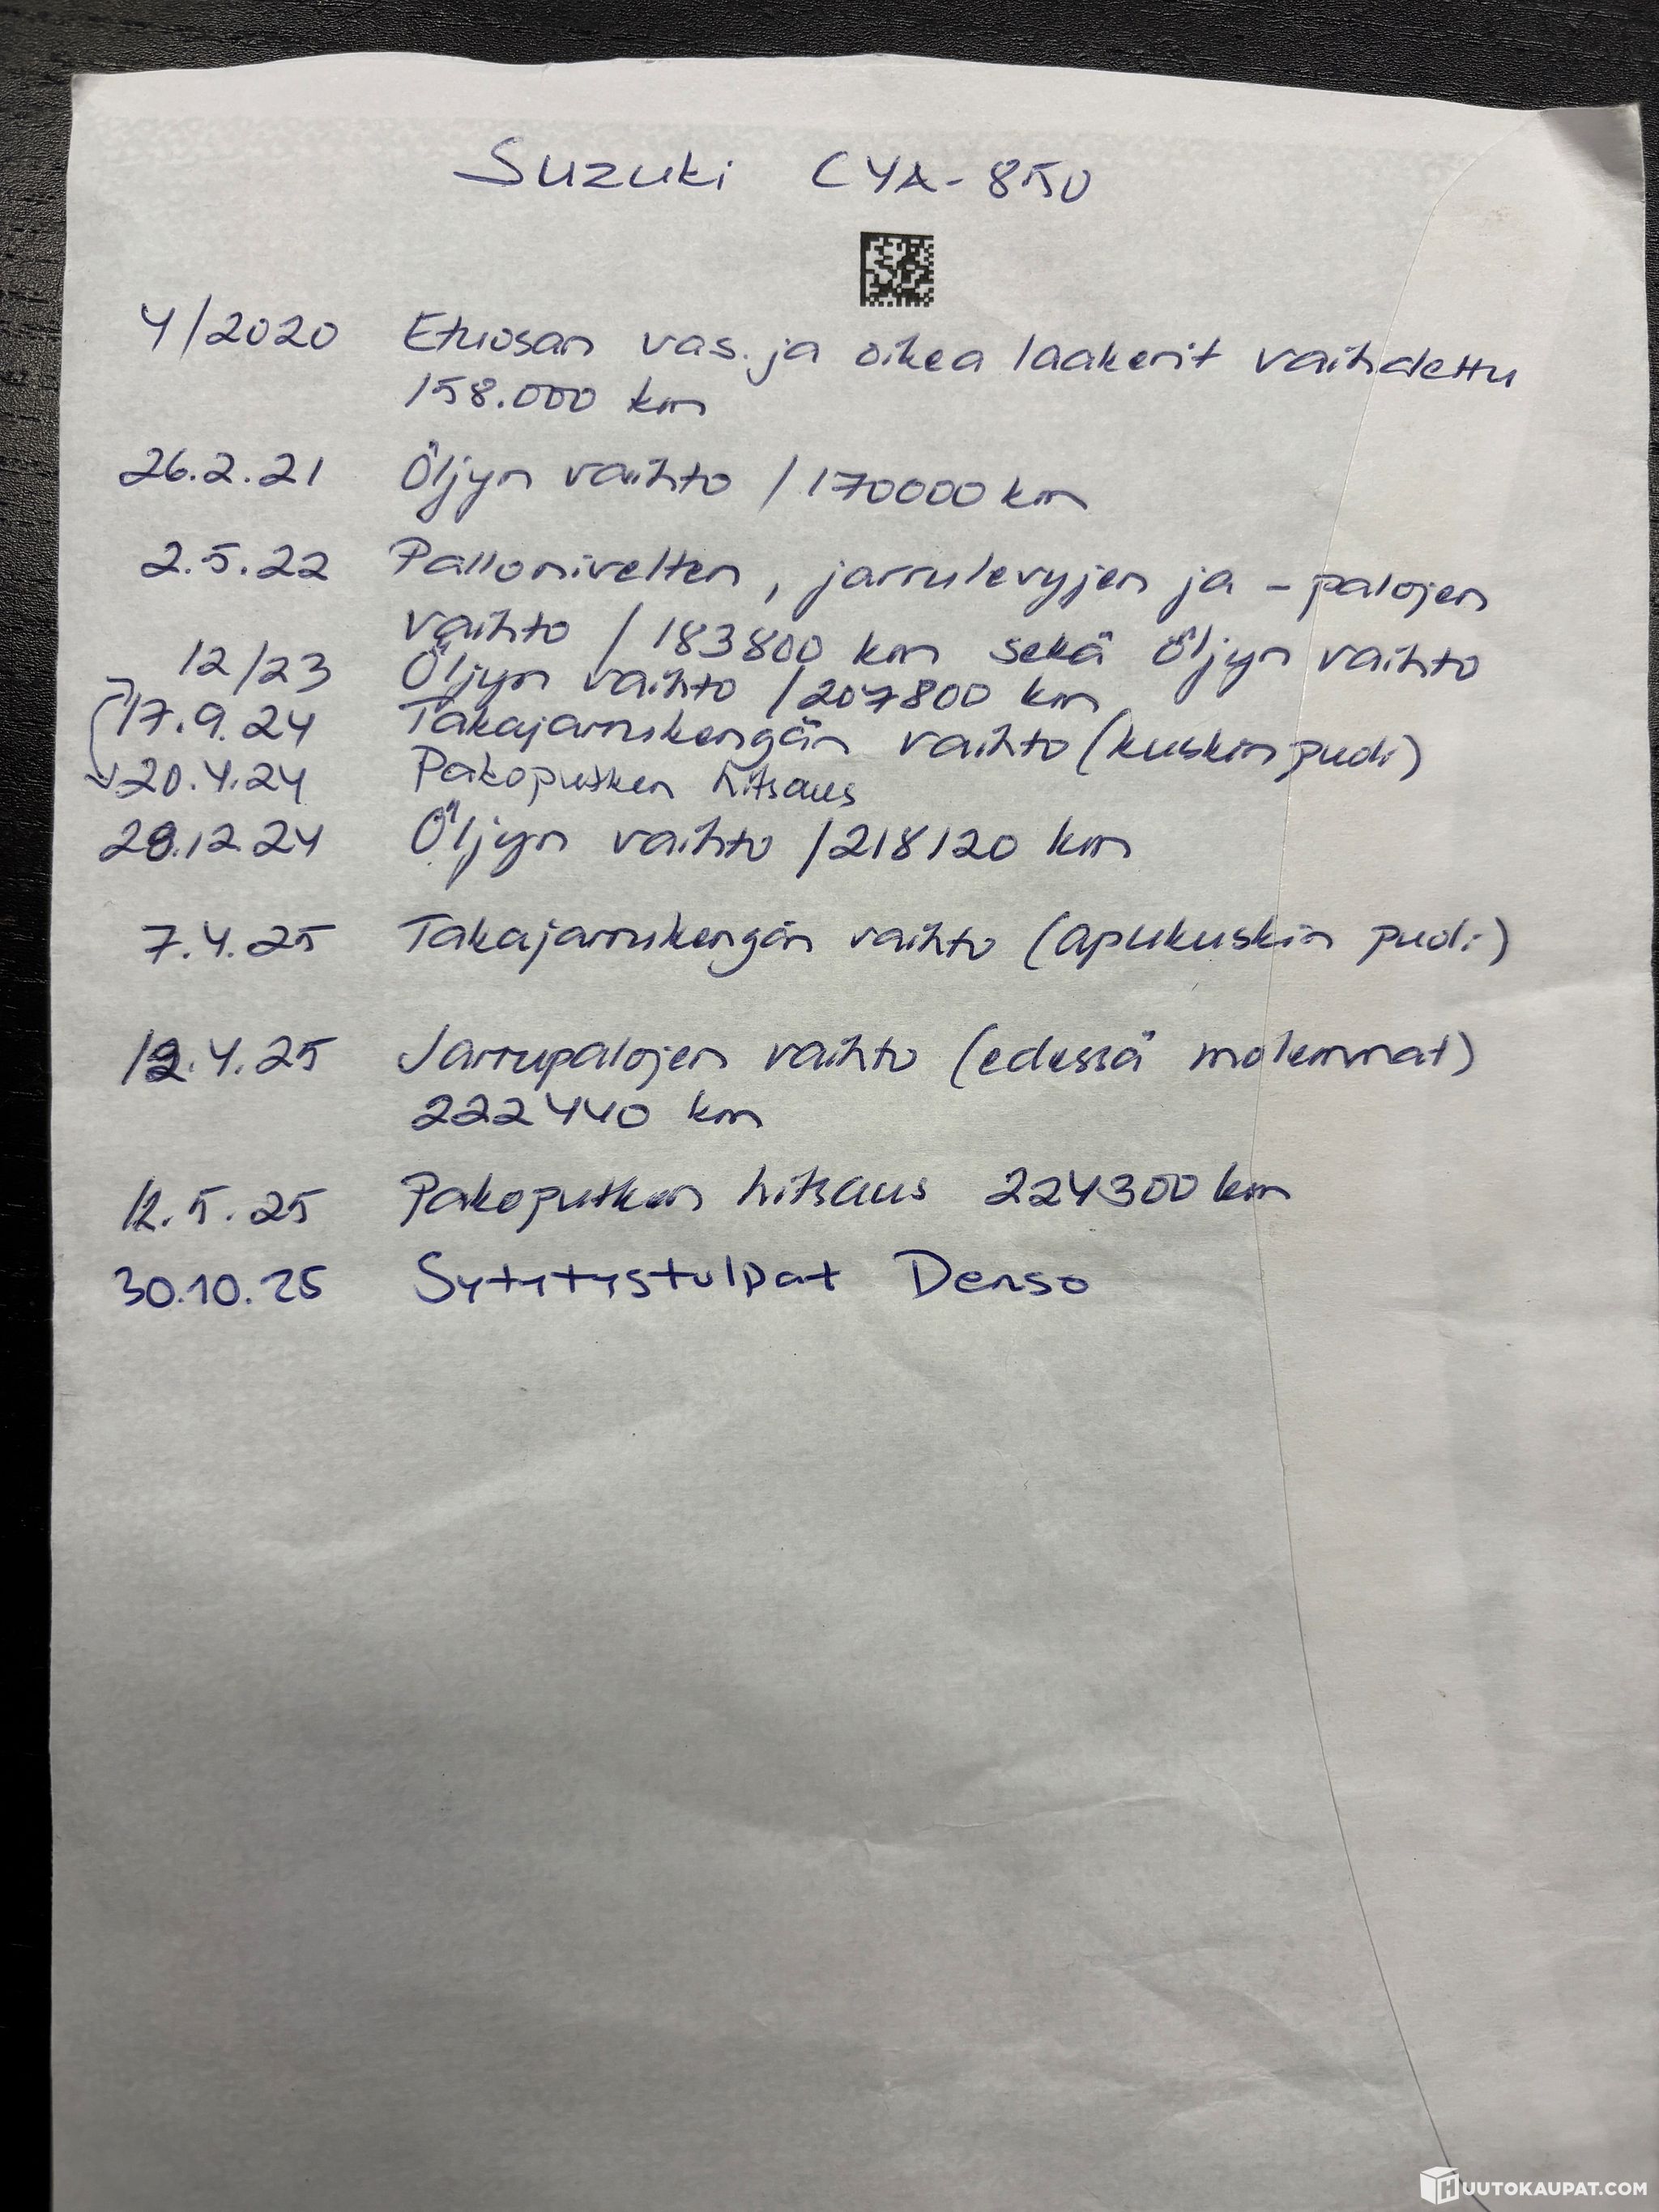 Suzuki CYA-850
4/2020 Etuosan vas. ja oikea laakerit vaihdettu
158.000 km
26.2.21 Öljyn vaihto / 170000 km
2.5.22 Pallonivelten, jarrulevyjen ja -palojen
vaihto / 183800 km sekä öljyn vaihto
12/23 Öljyn vaihto / 207800 km
17.9.24 Takajarrukengän vaihto (kuskin puoli)
20.4.24 Pakoputken hitsaus
28.12.24 Öljyn vaihto / 218120 km
7.4.25 Takajarrukengän vaihto (apukuskin puoli)
12.4.25 Jarrupalojen vaihto (edessä molemmat)
222440 km
12.5.25 Pakoputken hitsaus 224300 km
30.10.25 Sytytystulpat Denso
HUUTOKAUPAT.COM